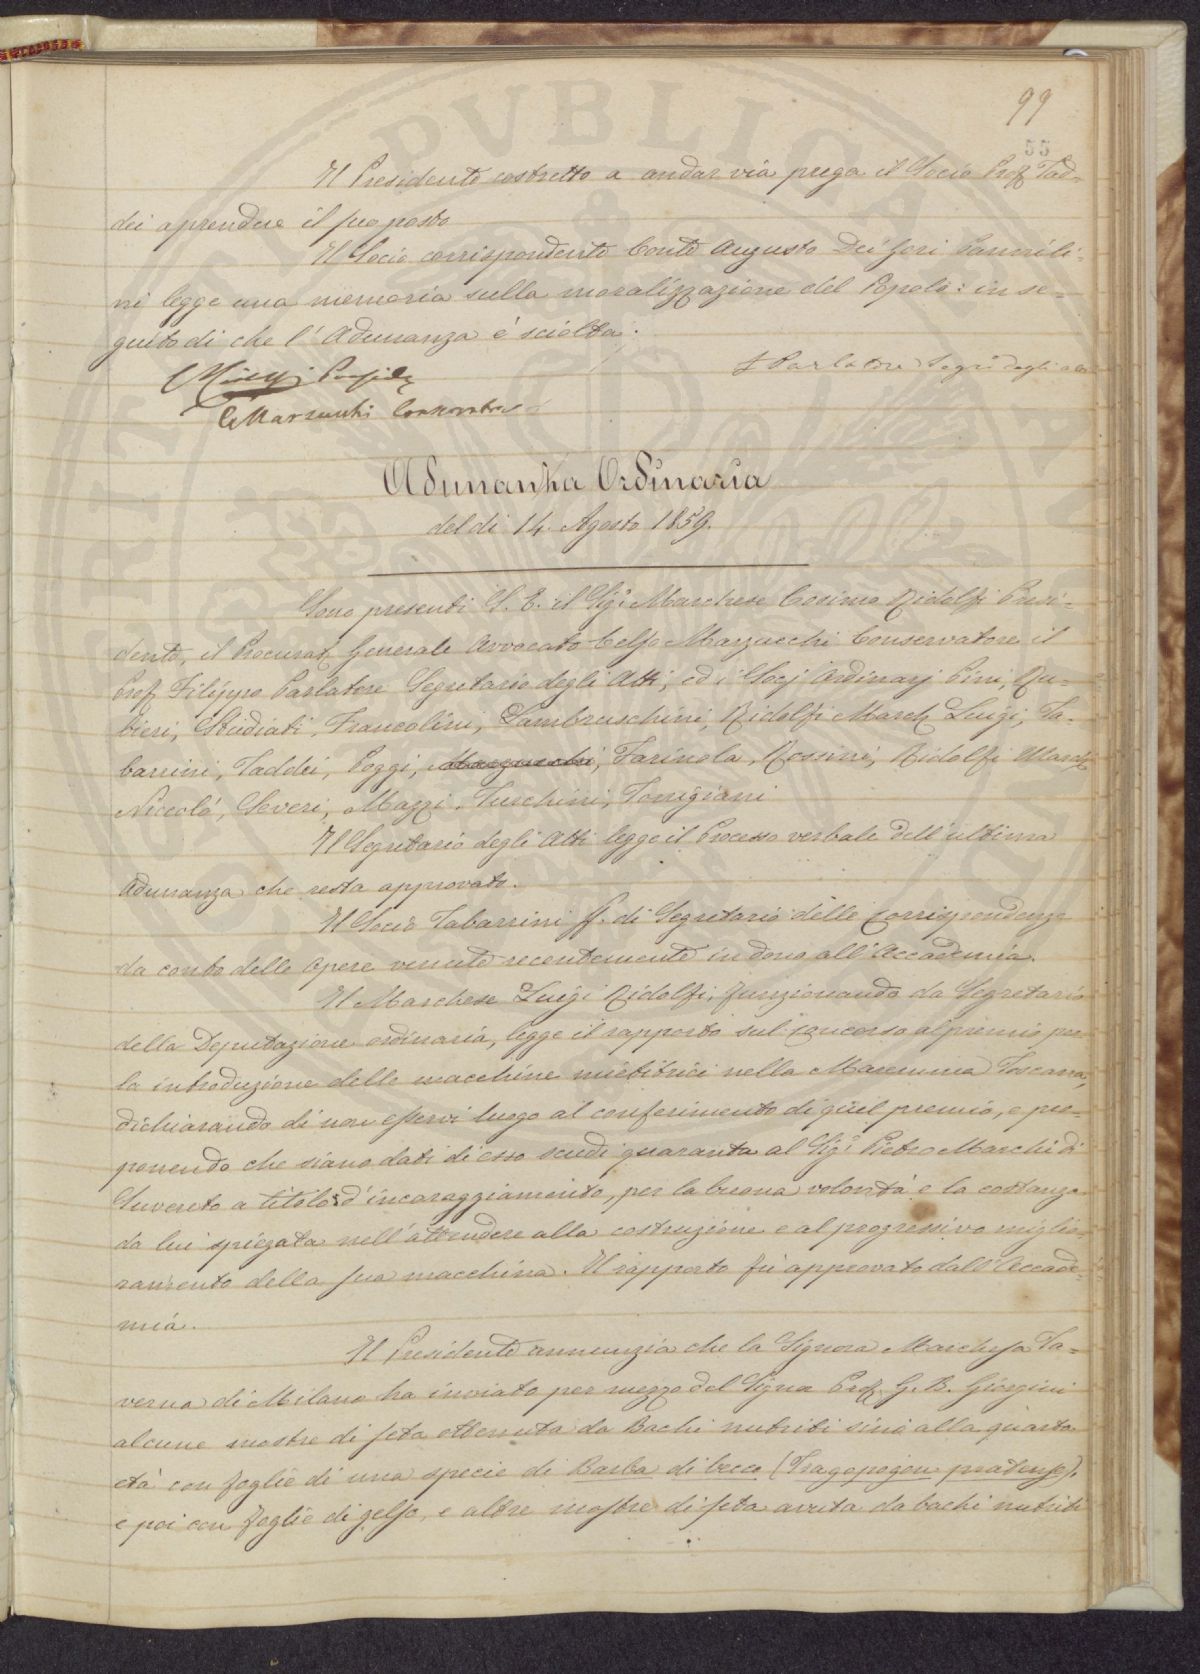 99
55
Il Presidente costretto a andar via prega il Socio Prof. Tad-
dei a prendere il suo posto
Il Socio corrispondente Conte Augusto Dei Gori Pannili-
ni legge una memoria sulla moralizzazione del Popolo: in se-
guito di che l'Adunanza è sciolta.
F Parlatore Segr. degli atti
C Marzucchi Conservatore
Adunanza Ordinaria
del dì 14. Agosto 1859.
Sono presenti S. E. il Sig. Marchese Cosimo Ridolfi Presi-
dente, il Procurat. Generale Avvocato Celso Marzucchi Conservatore il
Prof. Filippo Parlatore Segretario degli Atti, ed i Socj Ordinarj Pini, Ru-
bieri, Studiati, Francolini, Lambruschini, Ridolfi March. Luigi, Ta-
barrini, Taddei, Poggi, Marzucchi, Farinola, Rossini, Ridolfi March.
Niccolò, Severi, Mazzi, Turchini, Torrigiani
Il Segretario degli Atti legge il Processo verbale dell'ultima
Adunanza che resta approvato.
Il Socio Tabarrini ff. di Segretario delle Corrispondenze
da conto delle Opere venute recentemente in dono all'Accademia.
Il Marchese Luigi Ridolfi, funzionando da Segretario
della Deputazione ordinaria, legge il rapporto sul Concorso al premio per
la introduzione delle macchine mietitrici nella Maremma Toscana,
dichiarando di non esservi luogo al conferimento di quel premio, e pro-
ponendo che siano dati di esso scudi quaranta al Sig. Pietro Marchi di
Suvereto a titolo d'incoraggiamento, per la buona volontà e la costanza
da lui spiegata nell'attendere alla costruzione e al progressivo miglio-
ramento della sua macchina. Il rapporto fù approvato dall'Accade-
mia.
Il Presidente annunzia che la Signora Marchesa Ta-
verna di Milano ha inviato per mezzo del Signor Prof. G. B. Giorgini
alcune mostre di seta ottenuta da Bachi nutriti sino alla quarta
età con foglie di una specie di Barba di becco (Tragopogon pratense),
e poi con foglie di gelso, e altre mostre di seta avuta da bachi nutriti